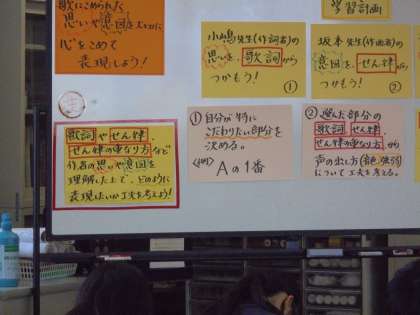 歌にこめられた
思いや意図を大切に
心をこめて
表現しよう!
学習計画
小嶋先生(作詞者)の
思いを、歌詞から
つかもう!
①
坂本先生(作曲者)の
意図を、せん律から
つかもう!
②
歌詞やせん律、
せん律の重なり方など
作者の思いや意図を
理解した上で、どのように
表現したいか工夫を考えよう!
①自分が特に
こだわりたい部分を
決める。
<例>
Aの1番
②選んだ部分の
歌詞、せん律、
せん律の重なり方から
声の出し方(音色、強弱)
について工夫を考える。